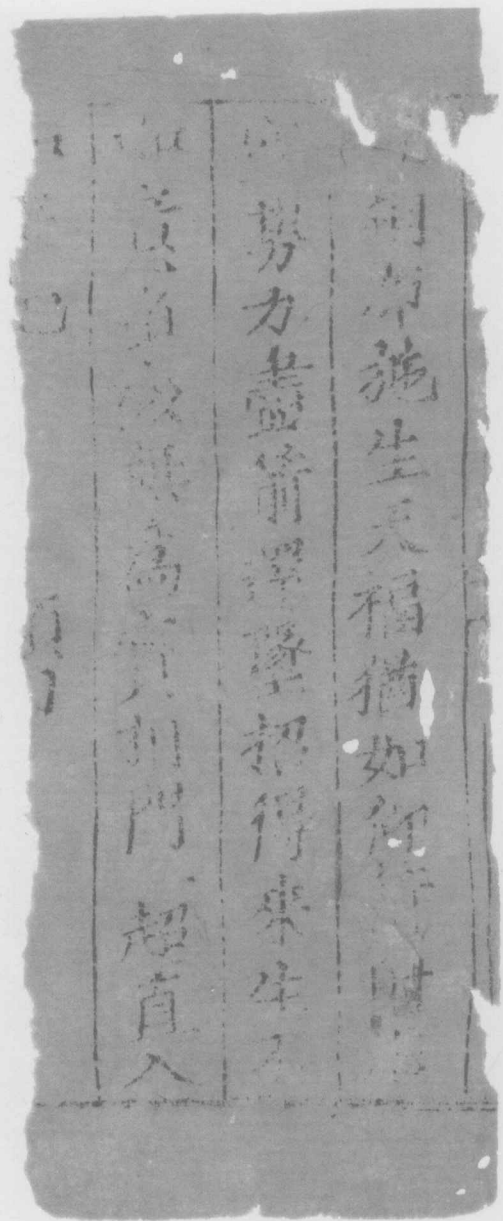 相布施生天福猶如仰箭射虛
空勢力盡箭還墜招得來生不
如意爭似無爲實相門一超直入
如來地